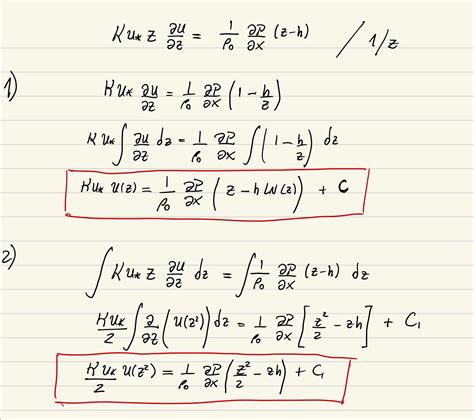 K u* z ∂U/∂z = 1/ρ₀ ∂P/∂x (z-h) / 1/z
1)
K u* ∂U/∂z = 1/ρ₀ ∂P/∂x (1 - h/z)
K u* ∫ ∂U/∂z dz = 1/ρ₀ ∂P/∂x ∫ (1 - h/z) dz
K u* U(z) = 1/ρ₀ ∂P/∂x (z - h LN(z)) + C
2)
∫ K u* z ∂U/∂z dz = ∫ 1/ρ₀ ∂P/∂x (z-h) dz
K u*/2 ∫ ∂/∂z (U(z²)) dz = 1/ρ₀ ∂P/∂x [z²/2 - zh] + C₁
K u*/2 U(z²) = 1/ρ₀ ∂P/∂x (z²/2 - zh) + C₁